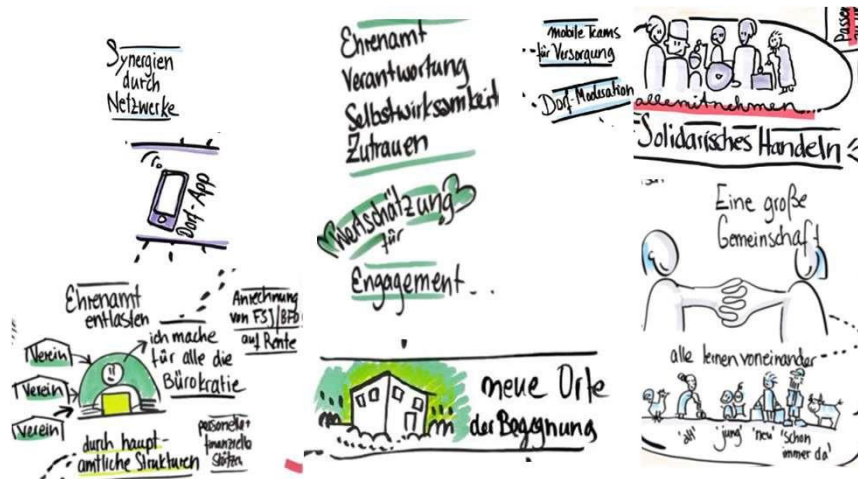 Synergien
durch
Netzwerke
Dorf-App
Ehrenamt
entlasten
Anrechnung
von FSJ/BFD
auf Rente
Verein
Verein
Verein
ich mache
für alle die
Bürokratie
durch haupt-
amtliche Strukturen
personelle +
finanzielle
Stütze
Ehrenamt
Verantwortung
Selbstwirksamkeit
Zutrauen
Wertschätzung
für
Engagement...
neue Orte
der Begegnung
mobile Teams
für Versorgung
Dorf-Moderation
alle mitnehmen...
Solidarisches Handeln
Eine große
Gemeinschaft
alle lernen voneinander
'alt' 'jung' 'neu' 'schon
immer da'